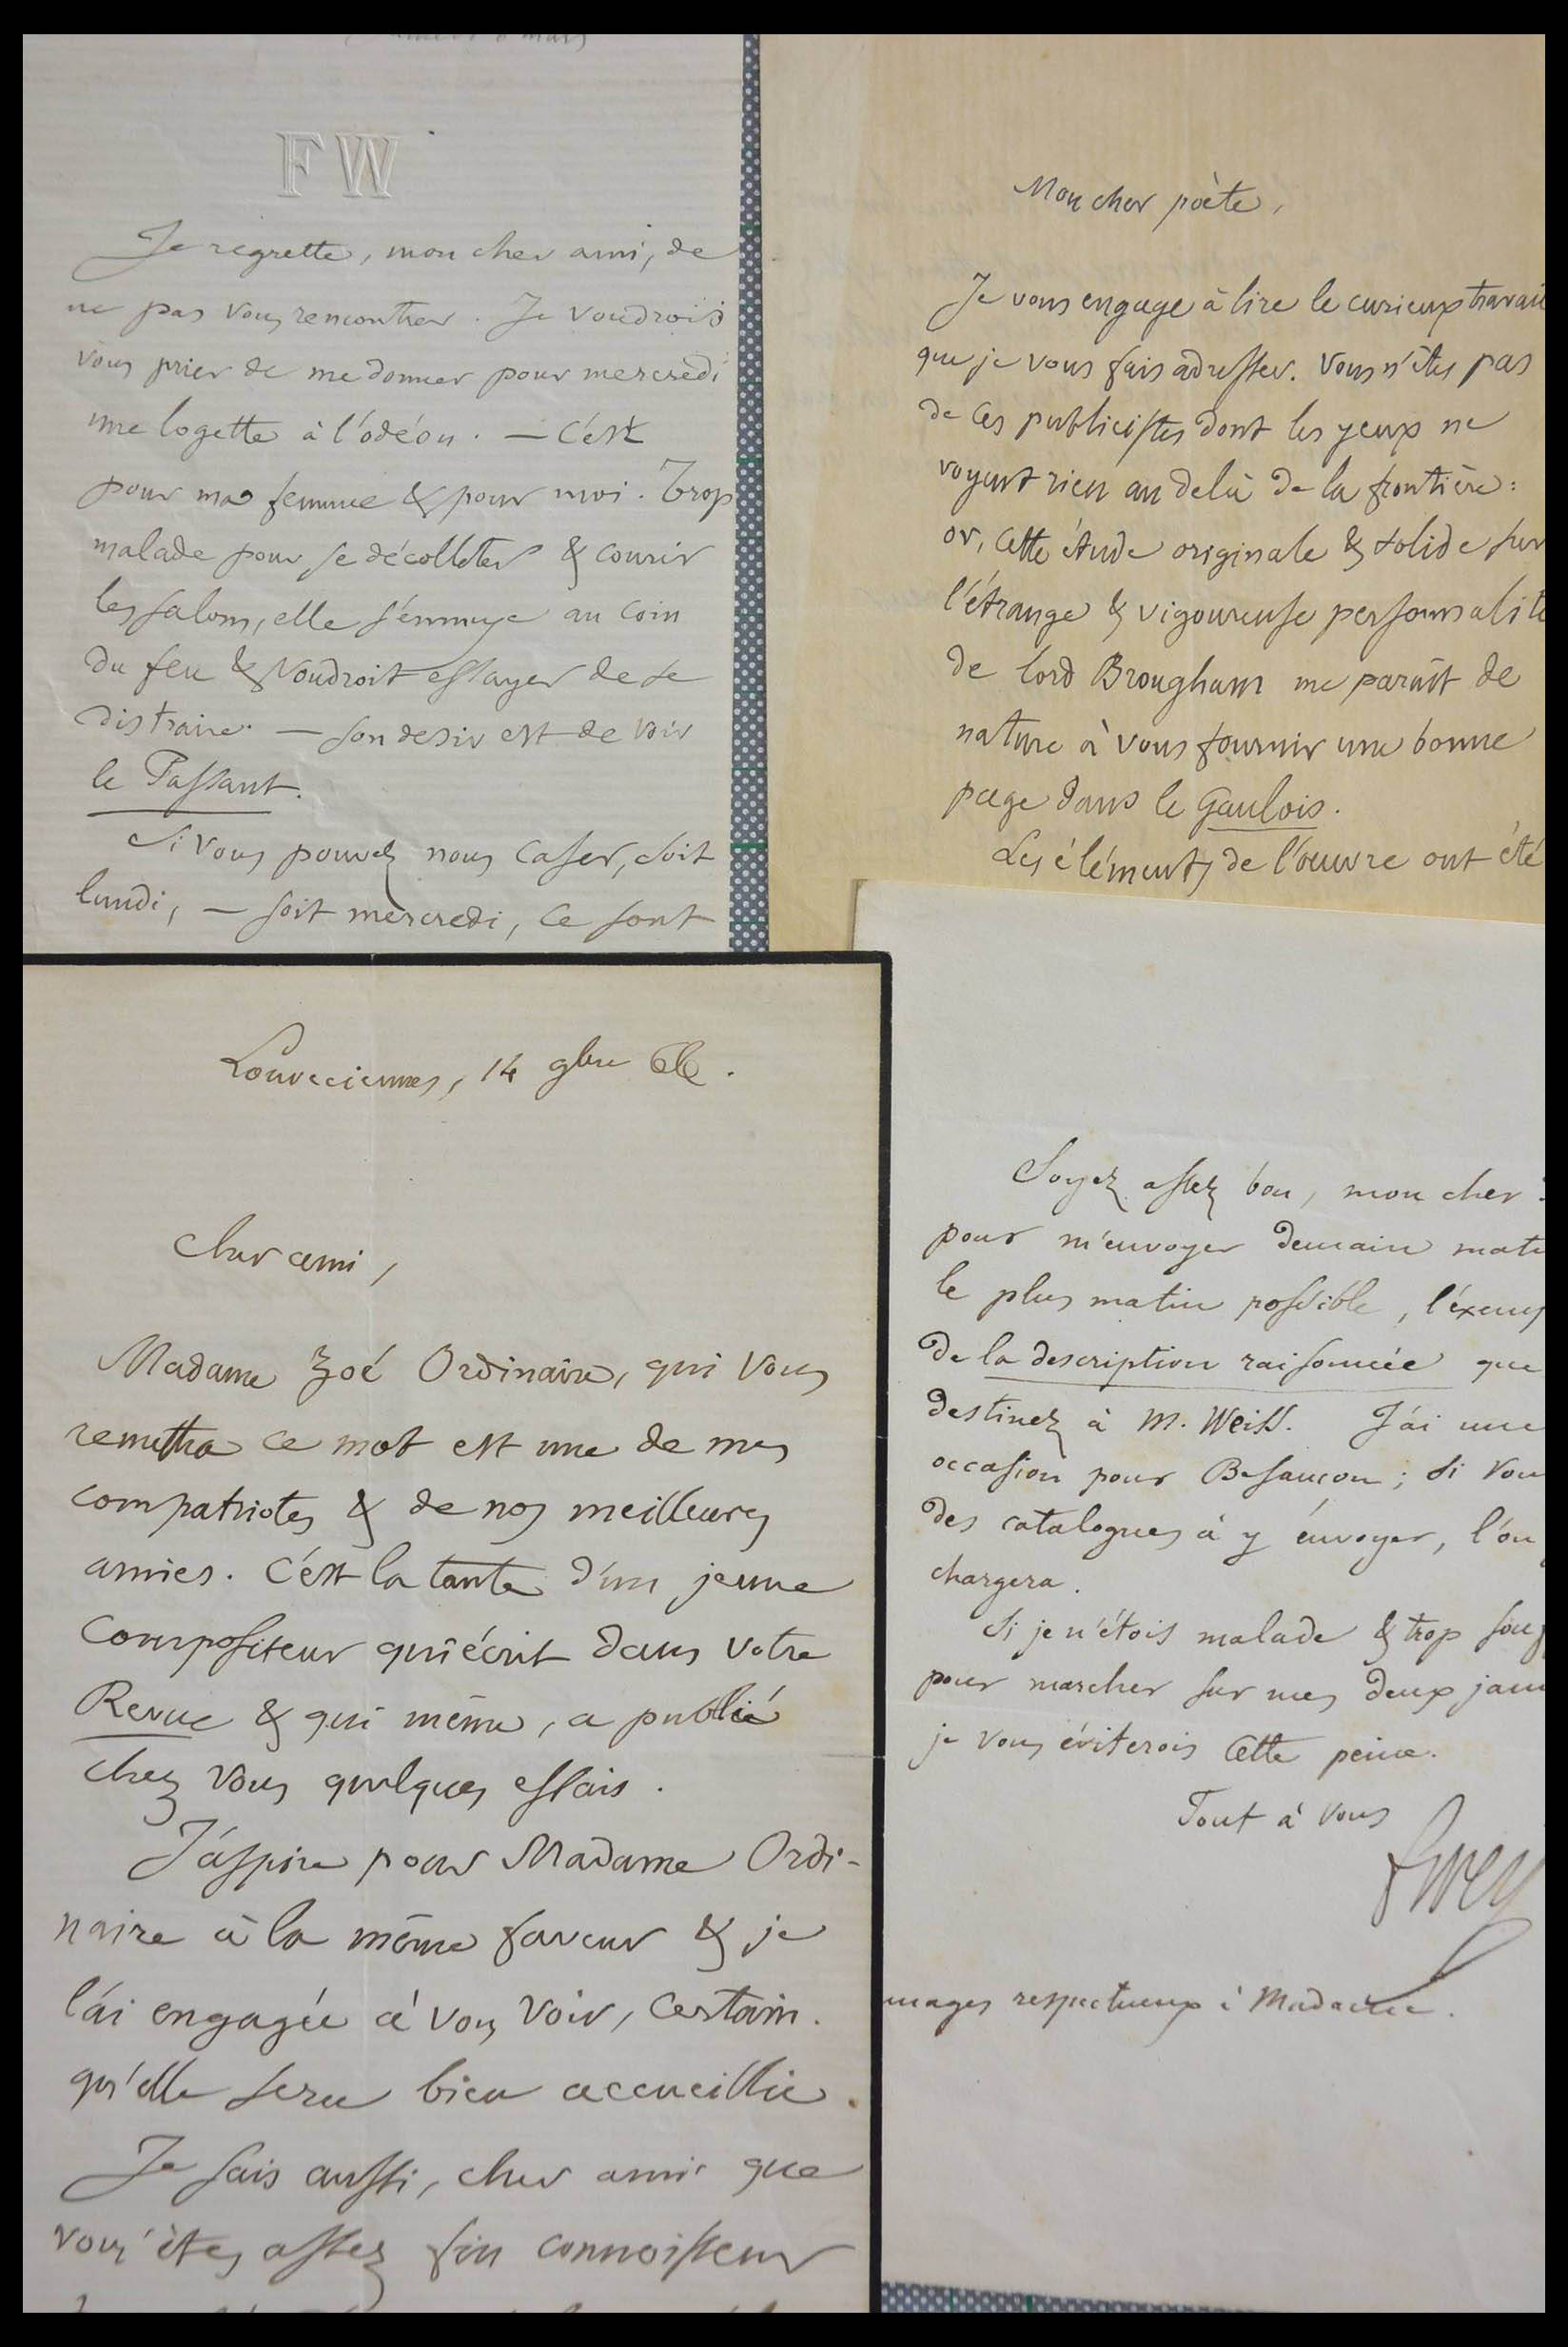 FW
Je regrette, mon cher ami, de
ne pas vous rencontrer. Je voudrois
vous prier de me donner pour mercredi
une logette à l'odéon. — C'est
pour ma femme & pour moi. Trop
malade pour se décolleter & courir
les salons, elle s'ennuye au coin
du feu & voudroit essayer de se
distraire. — Son desir est de voir
le Passant.
Si vous pouvez nous caser, soit
lundi, — soit mercredi, ce sont
Mon cher poète,
Je vous engage à lire le curieux travail
que je vous fais adresser. Vous n'êtes pas
de ces publicistes dont les yeux ne
voyent rien au delà de la frontière :
or, cette étude originale & solide sur
l'étrange & vigoureuse personnalité
de lord Brougham me paroît de
nature à vous fournir une bonne
page dans le Gaulois.
Les éléments de l'œuvre ont été
Louveciennes, 14 9bre
Cher ami,
Madame Zoé Ordinaire, qui vous
remettra ce mot est une de mes
compatriotes & de nos meilleures
amies. C'est la tante d'un jeune
compositeur qui écrit dans votre
Revue & qui même, a publié
chez vous quelques essais.
J'aspire pour Madame Ordi-
naire à la même faveur & je
l'ai engagée à vous voir, certain
qu'elle sera bien accueillie.
Je sais aussi, cher ami que
vous êtes assez fin connoisseur
Soyez assez bon, mon cher
pour m'envoyer demain mati
le plus matin possible, l'éxemp
de la description raisonnée que
destinez à M. Weiss. J'ai une
occasion pour Besançon ; si vou
des catalogues à y énvoyer, l'on
chargera.
Si je n'étois malade & trop souf
pour marcher sur mes deux jam
je vous éviterois cette peine.
Tout à vous
F Wey
mages respectueux à Madame.